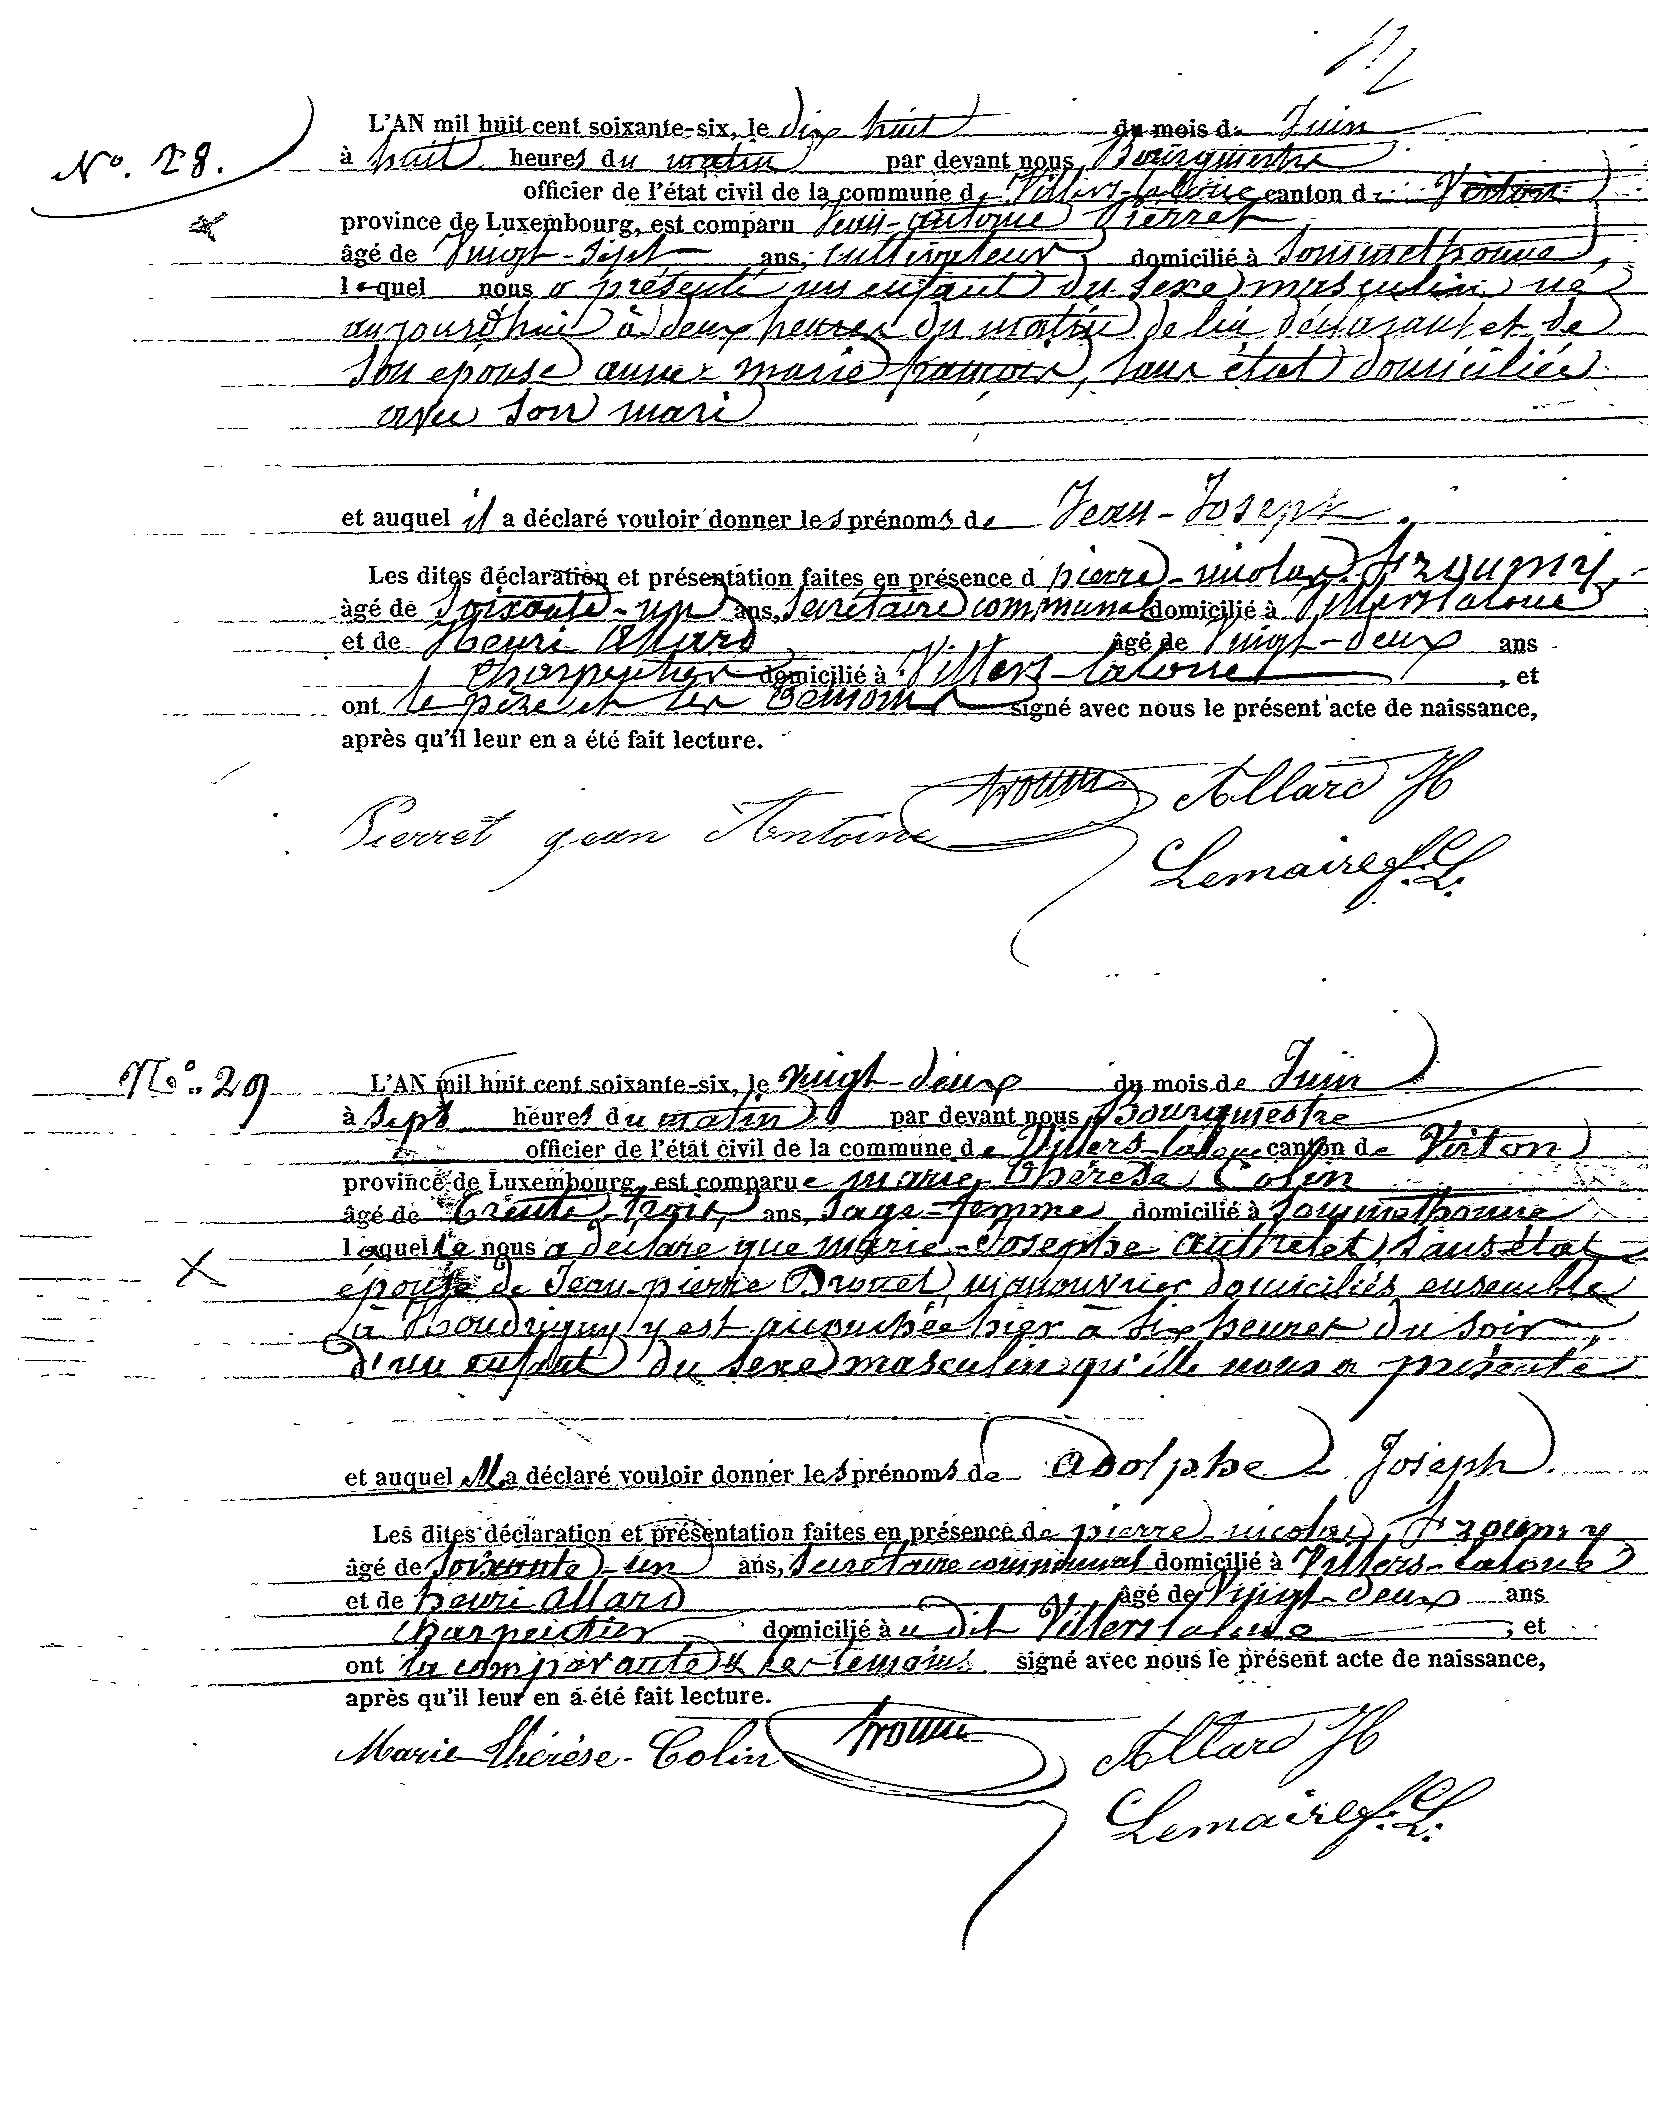 No. 28.
L'AN mil huit cent soixante-six, le dix huit du mois de Juin
à huit heures du matin par devant nous Bourgmestre
officier de l'état civil de la commune de Villers-laloue canton de Virton
province de Luxembourg, est comparu Jean-antoine Pierret
âgé de Vingt-sept ans, cultivateur domicilié à Sommethonne,
lequel nous a présenté un enfant du sexe masculin né
aujourd'hui à deux heures du matin de lui déclarant et de
son épouse anne marie françois, sans état domiciliée
avec son mari
et auquel il a déclaré vouloir donner les prénoms de Jean-Joseph.
Les dites déclaration et présentation faites en présence d pierre-nicolas
âgé de Soixante-un ans, Secrétaire communal domicilié à Villerslaloue
et de Henri Allard âgé de Vingt-deux ans
charpentier domicilié à Villers-laloue, et
ont le père et les témoins signé avec nous le présent acte de naissance,
après qu'il leur en a été fait lecture.
Pierret jean Antoine Allard H
Lemaire
No. 29
L'AN mil huit cent soixante-six, le vingt-deux du mois de Juin
à sept heures du matin par devant nous Bourgmestre
officier de l'état civil de la commune de Villers-laloue canton de Virton
province de Luxembourg, est comparue marie Thérèse Colin
âgé de Trente-trois ans, sage-femme domicilié à Sommethonne
laquelle nous a déclaré que marie-Josephe sans état
épouse de Jean-pierre Drouet, manouvrier domiciliés ensemble
à Houdrigny y est accouchée hier à six heures du soir,
d'un enfant du sexe masculin qu'elle nous a présenté
et auquel a déclaré vouloir donner les prénoms de adolphe Joseph.
Les dites déclaration et présentation faites en présence de pierre nicolas
âgé de Soixante-un ans, Secrétaire communal domicilié à Villers-laloue
et de henri allard âgé de Vingt-deux ans
charpentier domicilié à u dit Villerslaloue, et
ont la comparante & les témoins signé avec nous le présent acte de naissance,
après qu'il leur en a été fait lecture.
Marie Thérèse-Colin Allard H
Lemaire